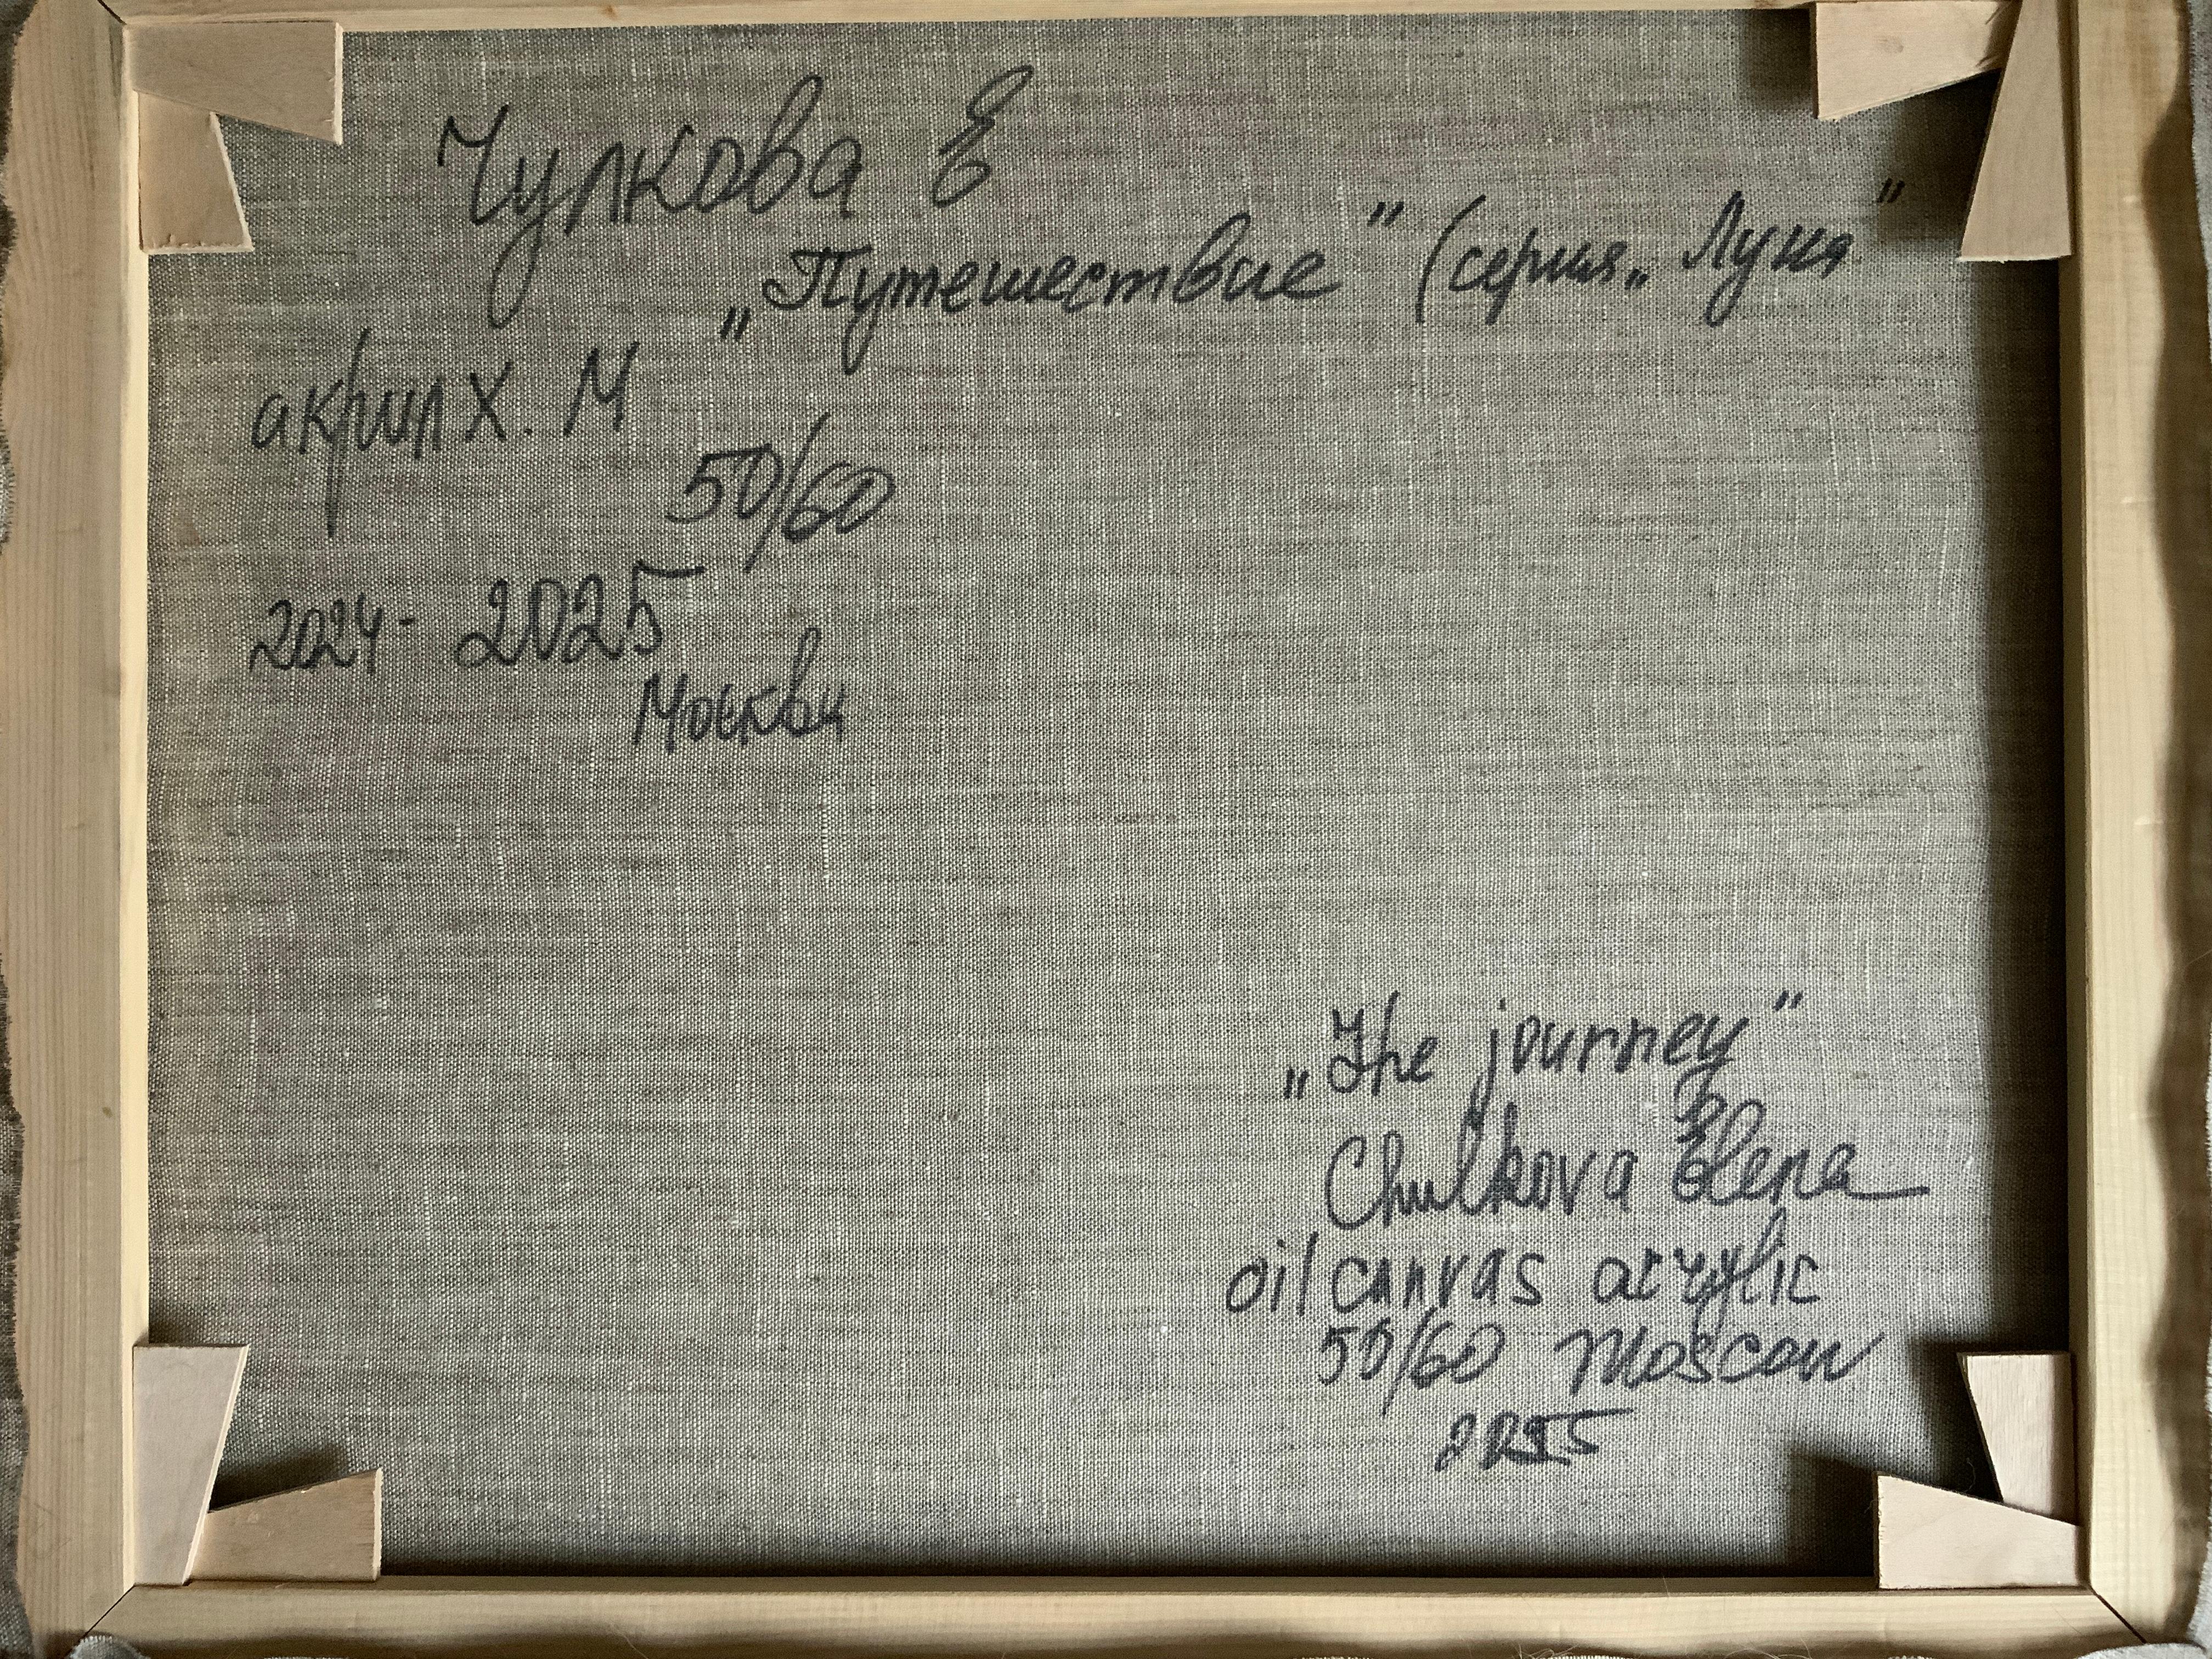 Чулкова Е
„Путешествие" (серия „Луна"
акрил Х. М
50/60
2024- 2025
Москва
„The journey"
Chulkova Elena
oil canvas acrylic
50/60 Moscow
2025